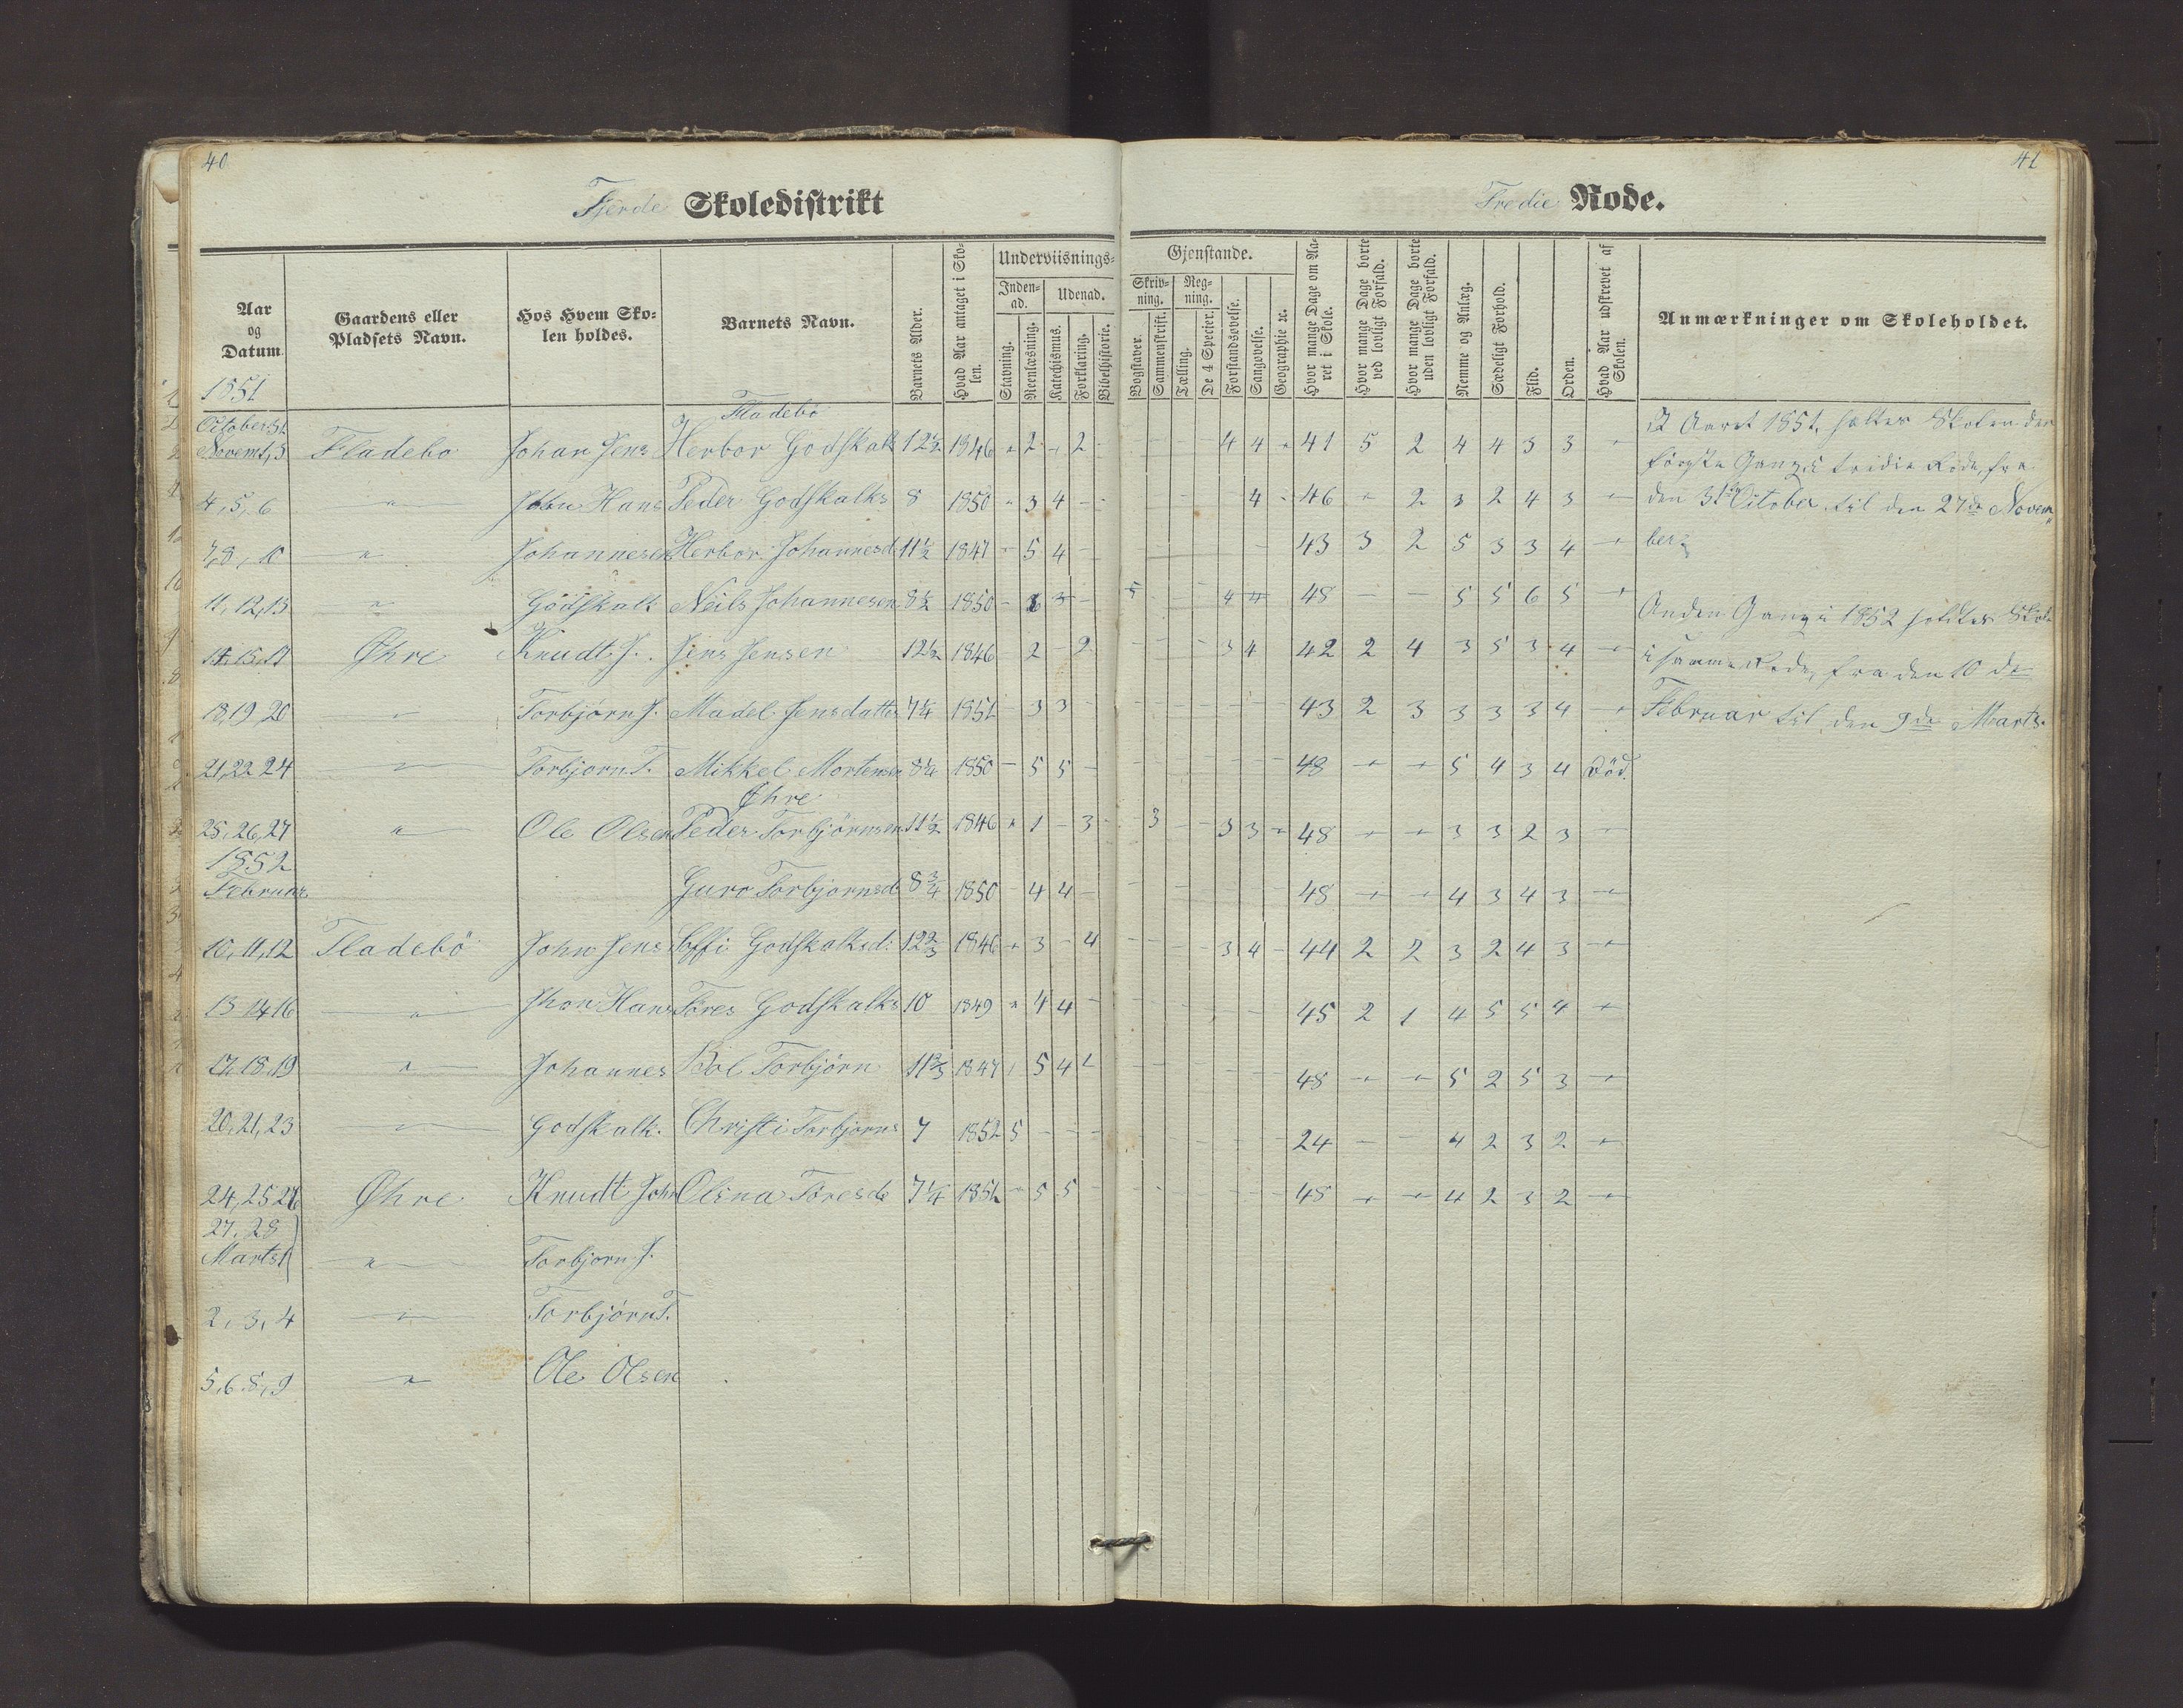 40
41
Fjerde Skoledistrikt
Tredie Rode.
Aar og Datum.
Gaardens eller Pladsets Navn.
Hos Hvem Skolen holdes.
Barnets Navn.
Barnets Alder.
Hvad Aar antaget i Skolen.
Underviisnings-
Gjenstande.
Inden-ad.
Udenad.
Stavning.
Reenlæsning.
Katechismus.
Forklaring.
Bibelhistorie.
Skriv-ning.
Reg-ning.
Bogstaver.
Sammenskrift.
Tælling.
De 4 Species.
Forstandsøvelse.
Sangøvelse.
Geographie ꝛc.
Hvor mange Dage om Aaret i Skole.
Hvor mange Dage borte ved lovligt Forfald.
Hvor mange Dage borte uden lovligt Forfald.
Nemme og Anlæg.
Sædeligt Forhold.
Flid.
Orden.
Hvad Aar udskrevet af Skolen.
Anmærkninger om Skoleholdet.
1851
Fladebö
October 31.
Novemt, 3 Fladebo Johan Jens Herbor Godskalk 12½ 1846 " 2 - 2 4 4 " 41 5 2 4 4 3 3
4, 5, 6 " John Hans Peder Godskalks 8 1850 " 3 4 - 4 - 46 " 2 3 2 4 3
7, 8, 10 " Johannesen Herbor Johannesd 11½ 1847 - 5 4 - 43 3 2 5 3 3 4
11, 12, 13 " Godskalk Neils Johannesen 8½ 1850 - 5 4 4 48 - - 5 5 6 5
14, 15, 17 Øhre Knudt J. Jens Jensen 12½ 1846 2 - 2 3 4 42 2 4 3 5 3 4
18, 19, 20 " Torbjörn J. Madel Jensdatter 7¼ 1851 - 3 3 43 2 3 3 3 3 4
21, 22 24 " Torbjorn T. Mikkel Mortensen 8¼ 1850 - 5 5 - 48 " " 5 4 3 4 Död.
Øhre
25, 26, 27 " Ole Olsen Peder Torbjörnsen 11½ 1846 " 1 - 3 3 3 3 " 48 " " 3 3 2 3
1852
Februar Guro Torbjornsd 8¾ 1850 - 4 4 - 48 " " 4 3 4 3
10, 11, 12 Fladebö John Jens Göffi Godskalksd: 12⅔ 1846 " 3 - 4 3 4 - 44 2 2 3 2 4 3
13 14 16 " Jhon Hans Töres Godskalks 10 1849 " 4 4 - 45 2 1 4 5 5 4
17, 18, 19 " Johannes Böl Torbjörn 11⅔ 1847 5 4 48 " " 5 2 5 3
20, 21, 23 " Godskalk. Christi Torbjorns 7 1852 5 - - - 24 - - 4 2 3 2
24, 25 26 Øhre Knudt John Olina Töresd 7¼ 1851 - 5 5 - 48 " " 4 2 3 2
27, 28
Marts 1 " Torbjorn J.
2, 3, 4 " Torbjörn T.
5, 6, 8, 9 " Ole Olsen
I Aaret 1851, holtes Skolen den
förste Gang i tredie Rode, fra
den 31te October til den 27de Novem
ber.
Anden Gang i 1852 holdtes Skole
i samme Rode, fra den 10 de
Februar til den 9de Marts.